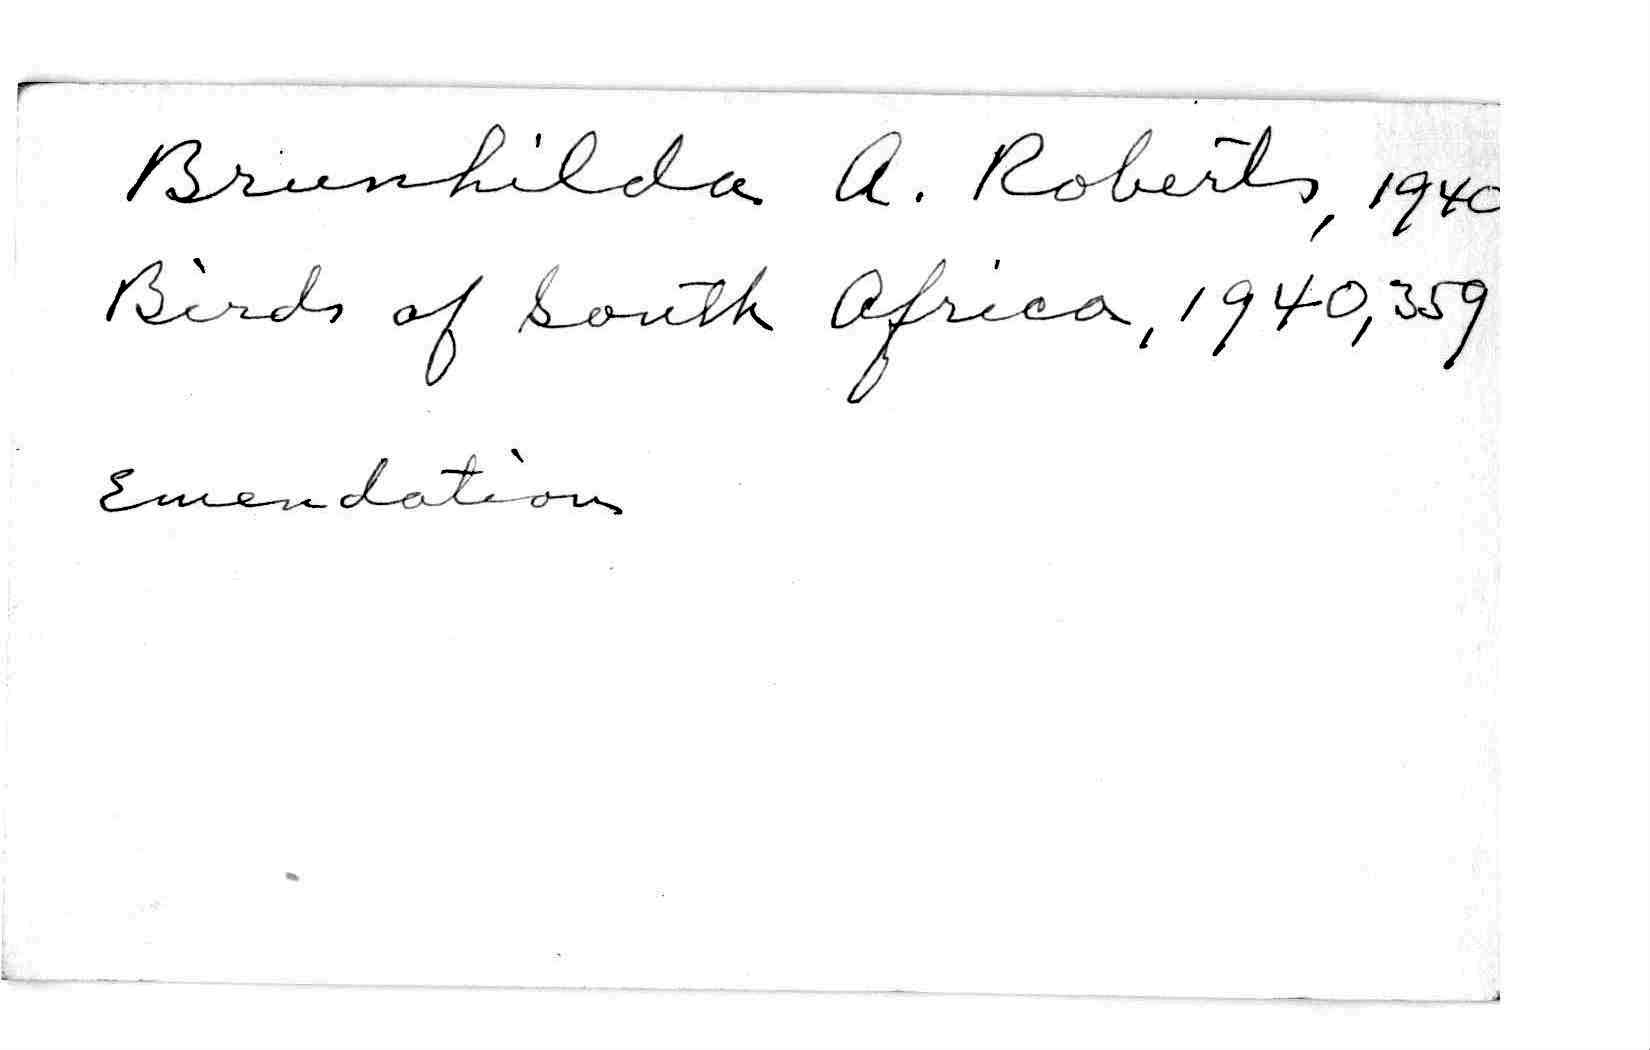 Brunhilda A. Roberts, 1940
Birds of South Africa, 1940, 359
Emendation